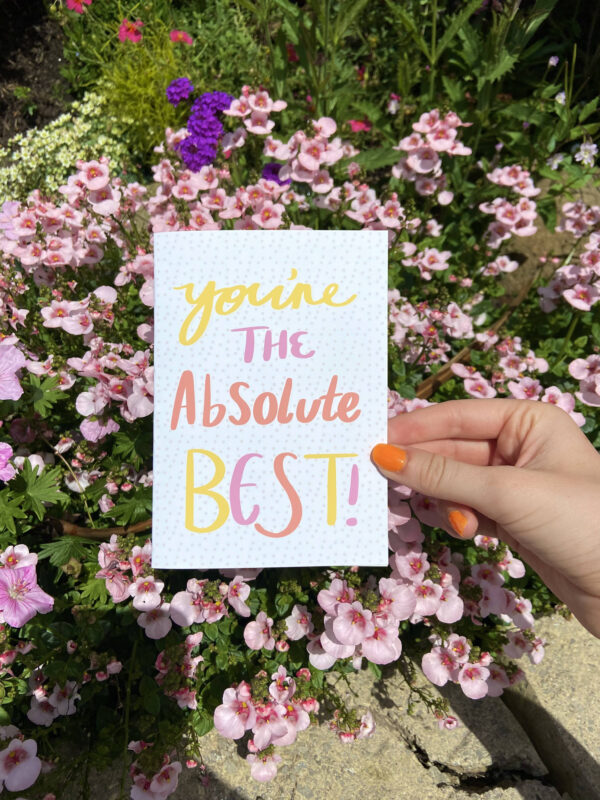 you're
THE
Absolute
BEST!